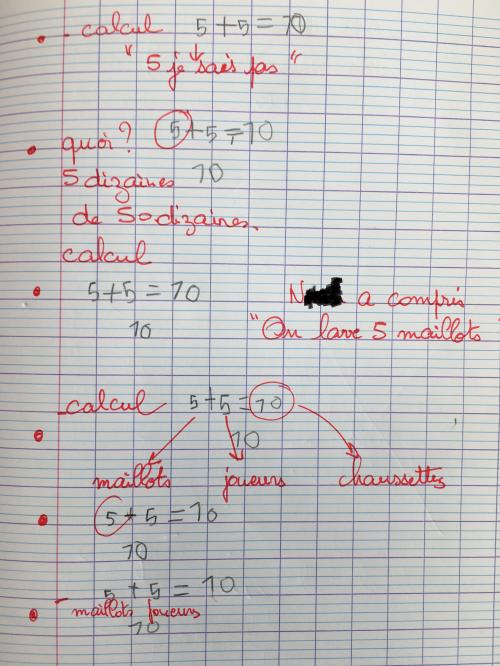 - calcul 5 + 5 = 10
" 5 je sais pas "
quoi ? 5 + 5 = 10
5 dizaines 10
de 50 dizaines.
calcul
5 + 5 = 10
10
N a compris
" On lave 5 maillots "
- calcul 5 + 5 = 10
10
maillots joueurs chaussettes
5 + 5 = 10
10
5 + 5 = 10
- maillots joueurs
10